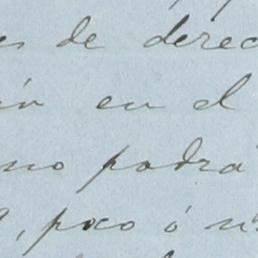 es de derec
en el
no podra
, poco ó